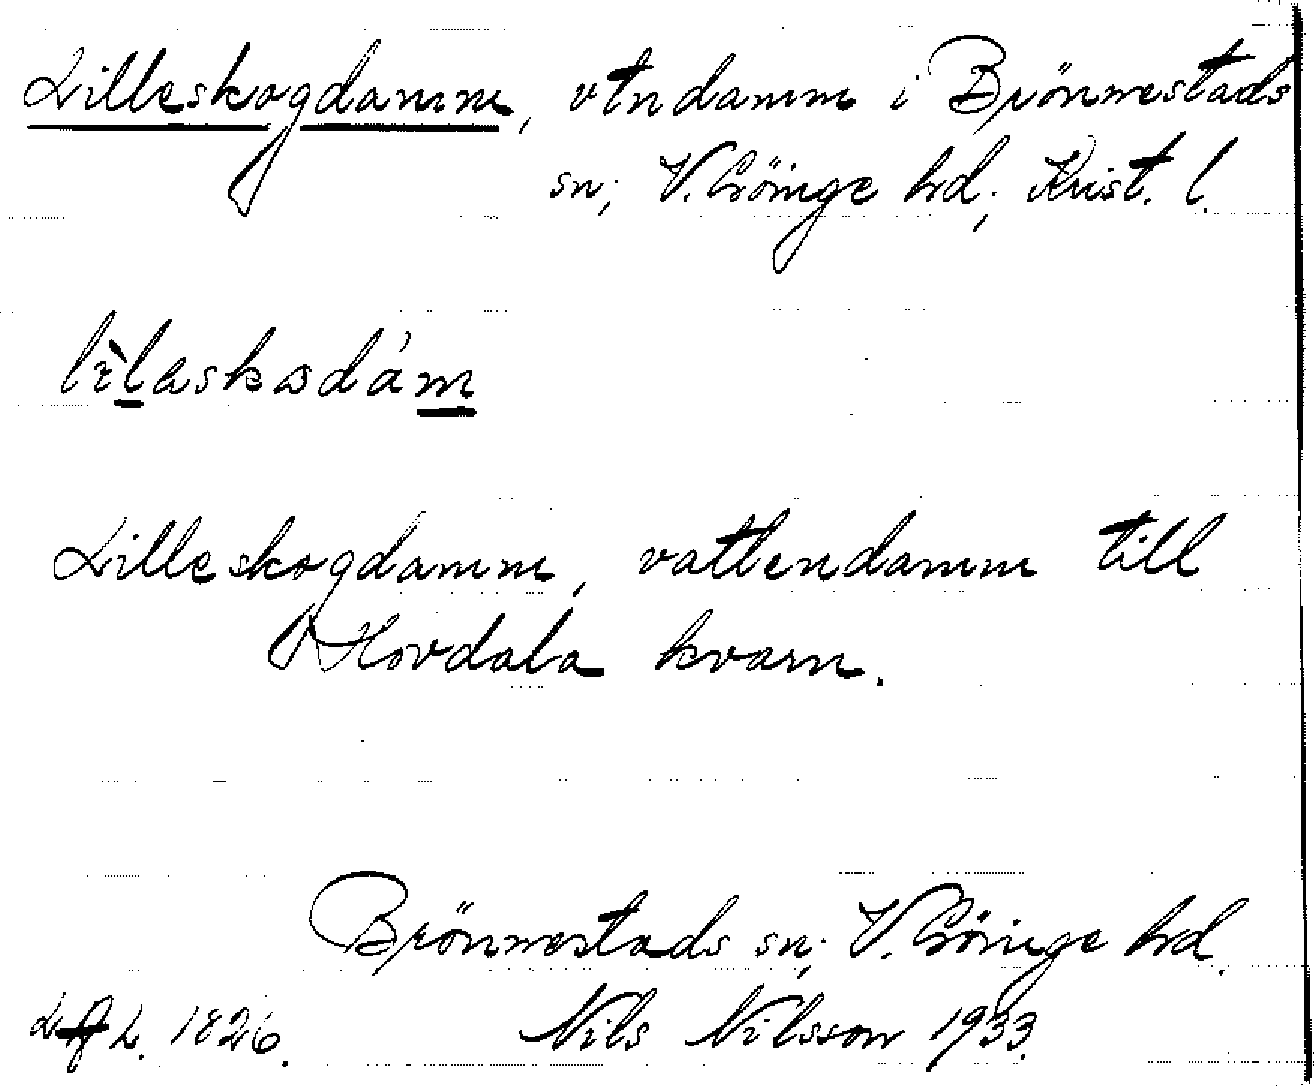 Lilleskogdamm, vtndamm i Brönnestads
sn; V. Göinge hd; Krist. l.
lèlaskosdám
Lilleskogdamm, vattendamm till
Hovdala kvarn.
Brönnestads sn; V. Göinge hd.
1826. Nils Nilsson 1933.